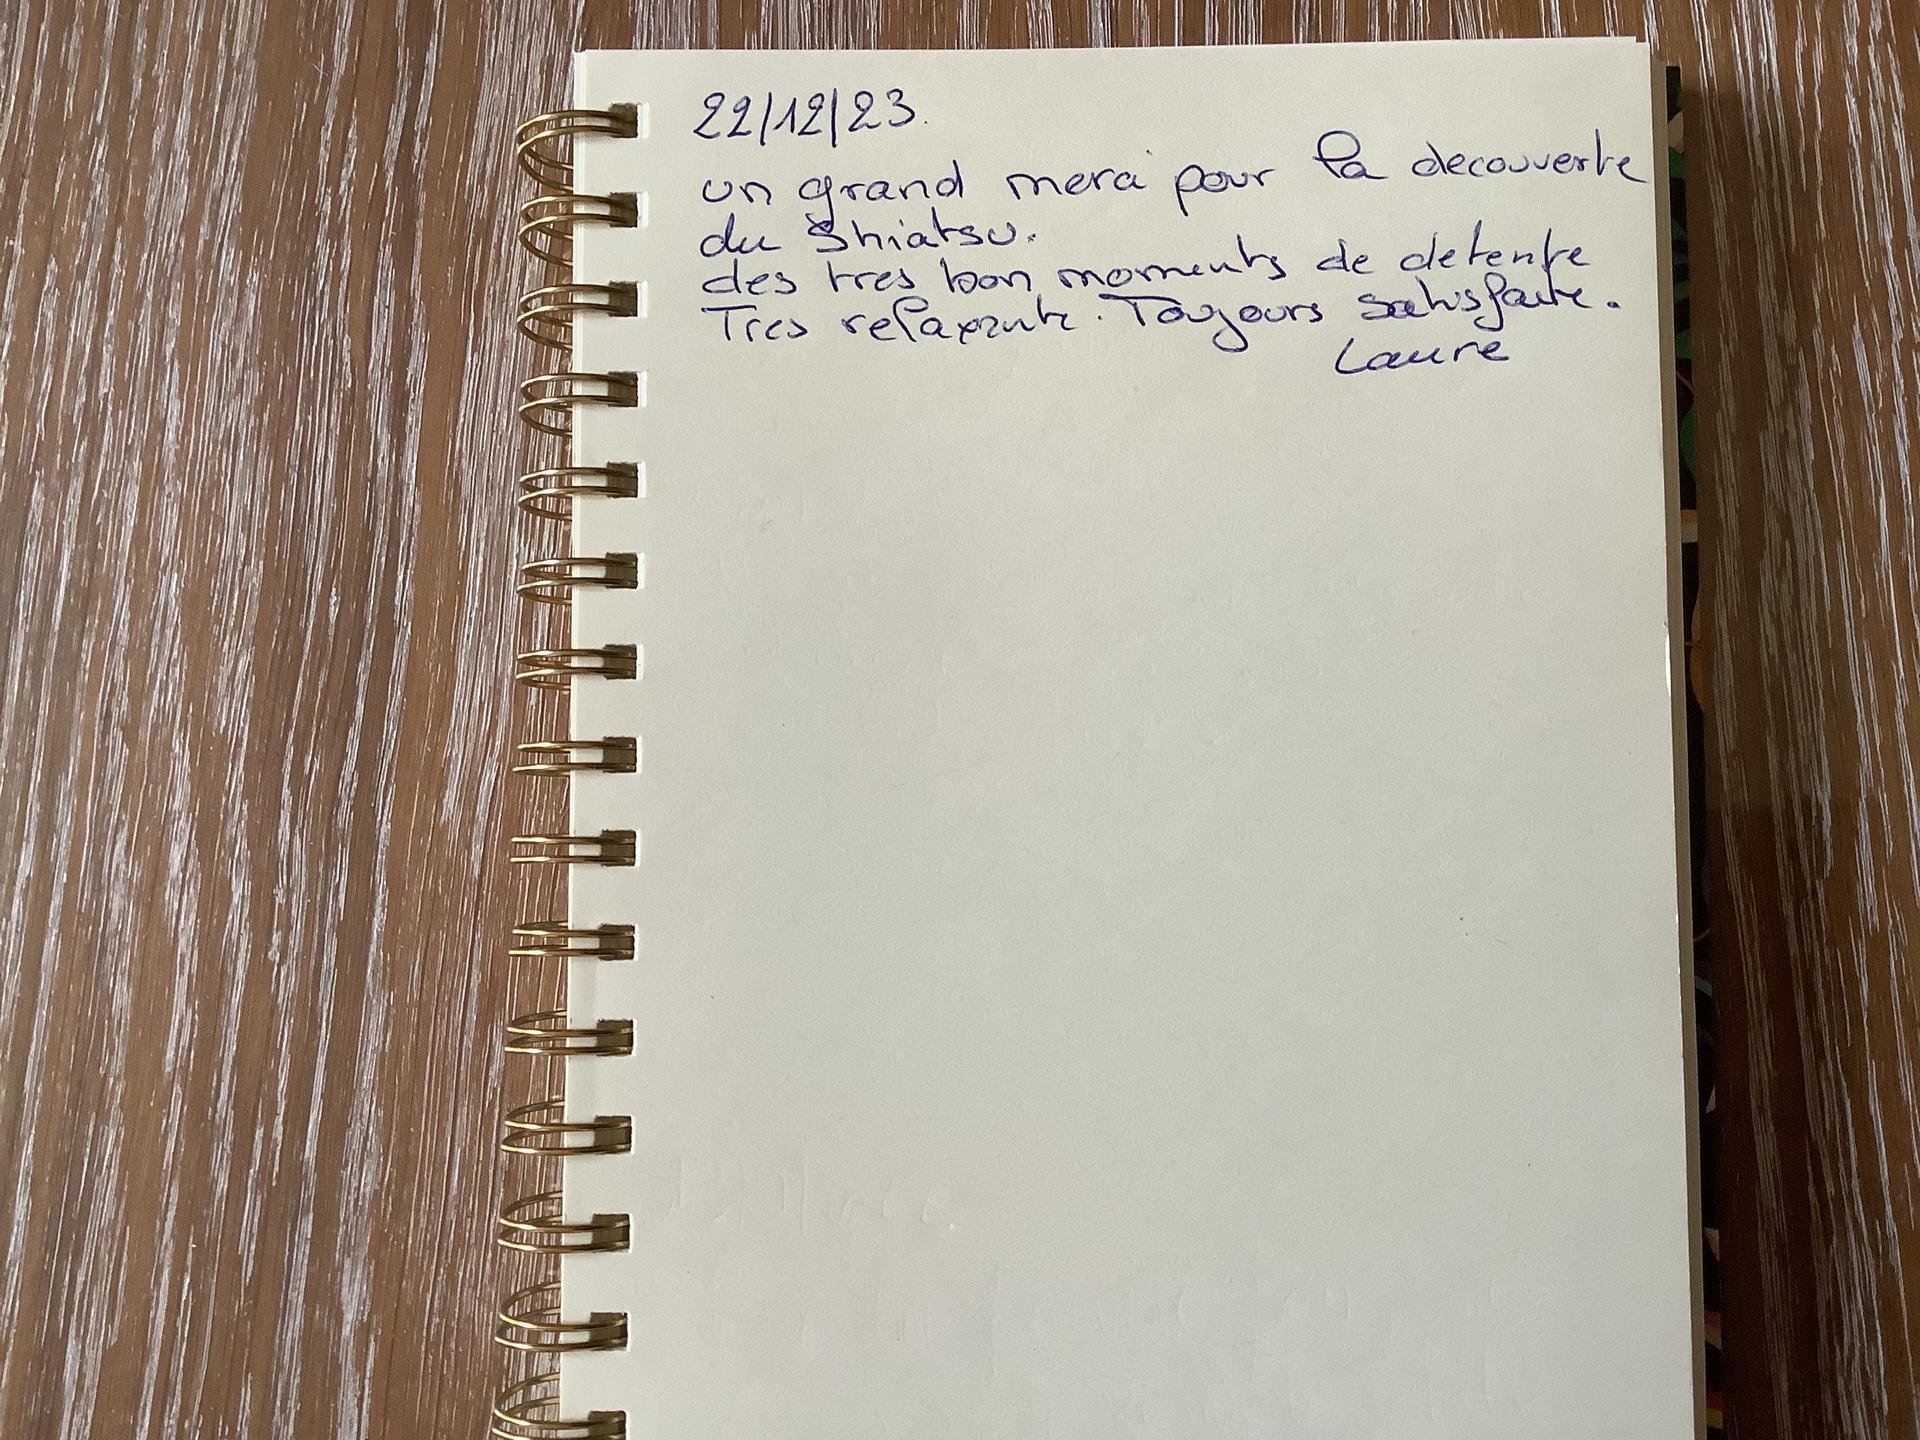 22/12/23.
un grand merci pour la decouverte
du Shiatsu.
des tres bon moments de detente
Tres relaxante. Toujours satisfaite.
Laure